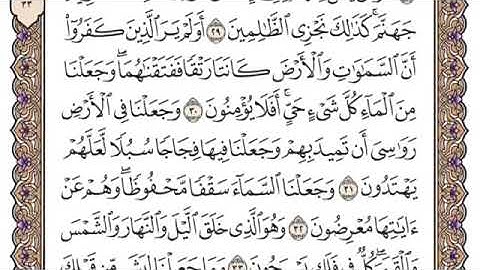 جَهَنَّمَ ۚ كَذَٰلِكَ نَجْزِى ٱلظَّٰلِمِينَ ٢٩ أَوَلَمْ يَرَ ٱلَّذِينَ كَفَرُوٓا۟
أَنَّ ٱلسَّمَٰوَٰتِ وَٱلْأَرْضَ كَانَتَا رَتْقًا فَفَتَقْنَٰهُمَا ۖ وَجَعَلْنَا
مِنَ ٱلْمَآءِ كُلَّ شَىْءٍ حَىٍّ ۖ أَفَلَا يُؤْمِنُونَ ٣٠ وَجَعَلْنَا فِى ٱلْأَرْضِ
رَوَٰسِىَ أَن تَمِيدَ بِهِمْ وَجَعَلْنَا فِيهَا فِجَاجًا سُبُلًا لَّعَلَّهُمْ
يَهْتَدُونَ ٣١ وَجَعَلْنَا ٱلسَّمَآءَ سَقْفًا مَّحْفُوظًا ۖ وَهُمْ عَنْ
ءَايَٰتِهَا مُعْرِضُونَ ٣٢ وَهُوَ ٱلَّذِى خَلَقَ ٱلَّيْلَ وَٱلنَّهَارَ وَٱلشَّمْسَ
وَٱلْقَمَرَ ۖ كُلٌّ فِى فَلَكٍ يَسْبَحُونَ ٣٣ وَمَا جَعَلْنَا لِبَشَرٍ مِّن قَبْلِكَ